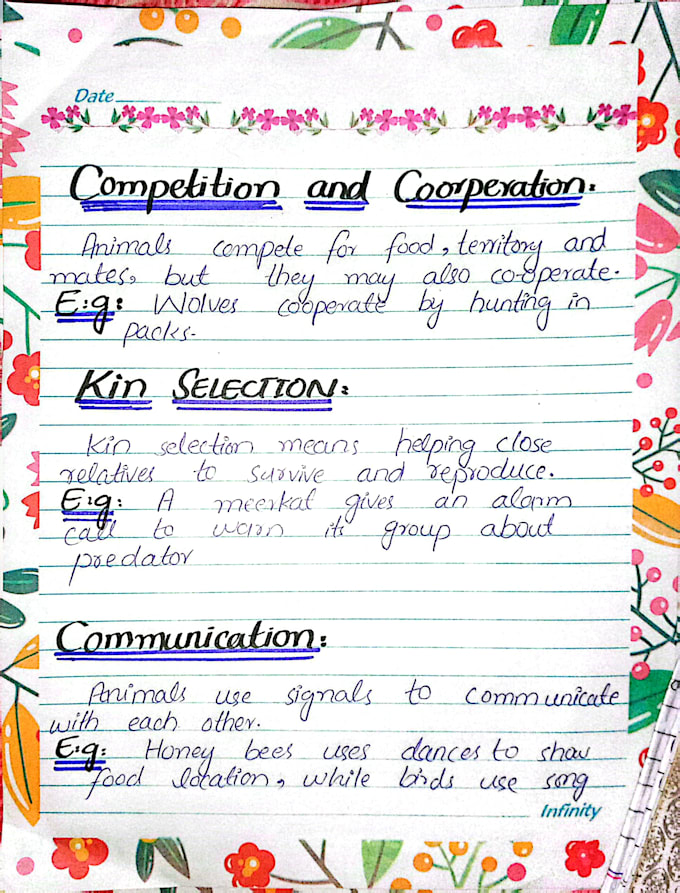 Date
Competition and Coorperation:
Animals compete for food, territory and
mates, but they may also co-operate.
E.g: Wolves cooperate by hunting in
packs.
Kin SELECTION:
Kin selection means helping close
relatives to survive and reproduce.
E.g: A meerkat gives an alarm
call to warn its group about
predator
Communication:
Animals use signals to communicate
with each other.
E.g: Honey bees uses dances to show
food location, while birds use song
Infinity